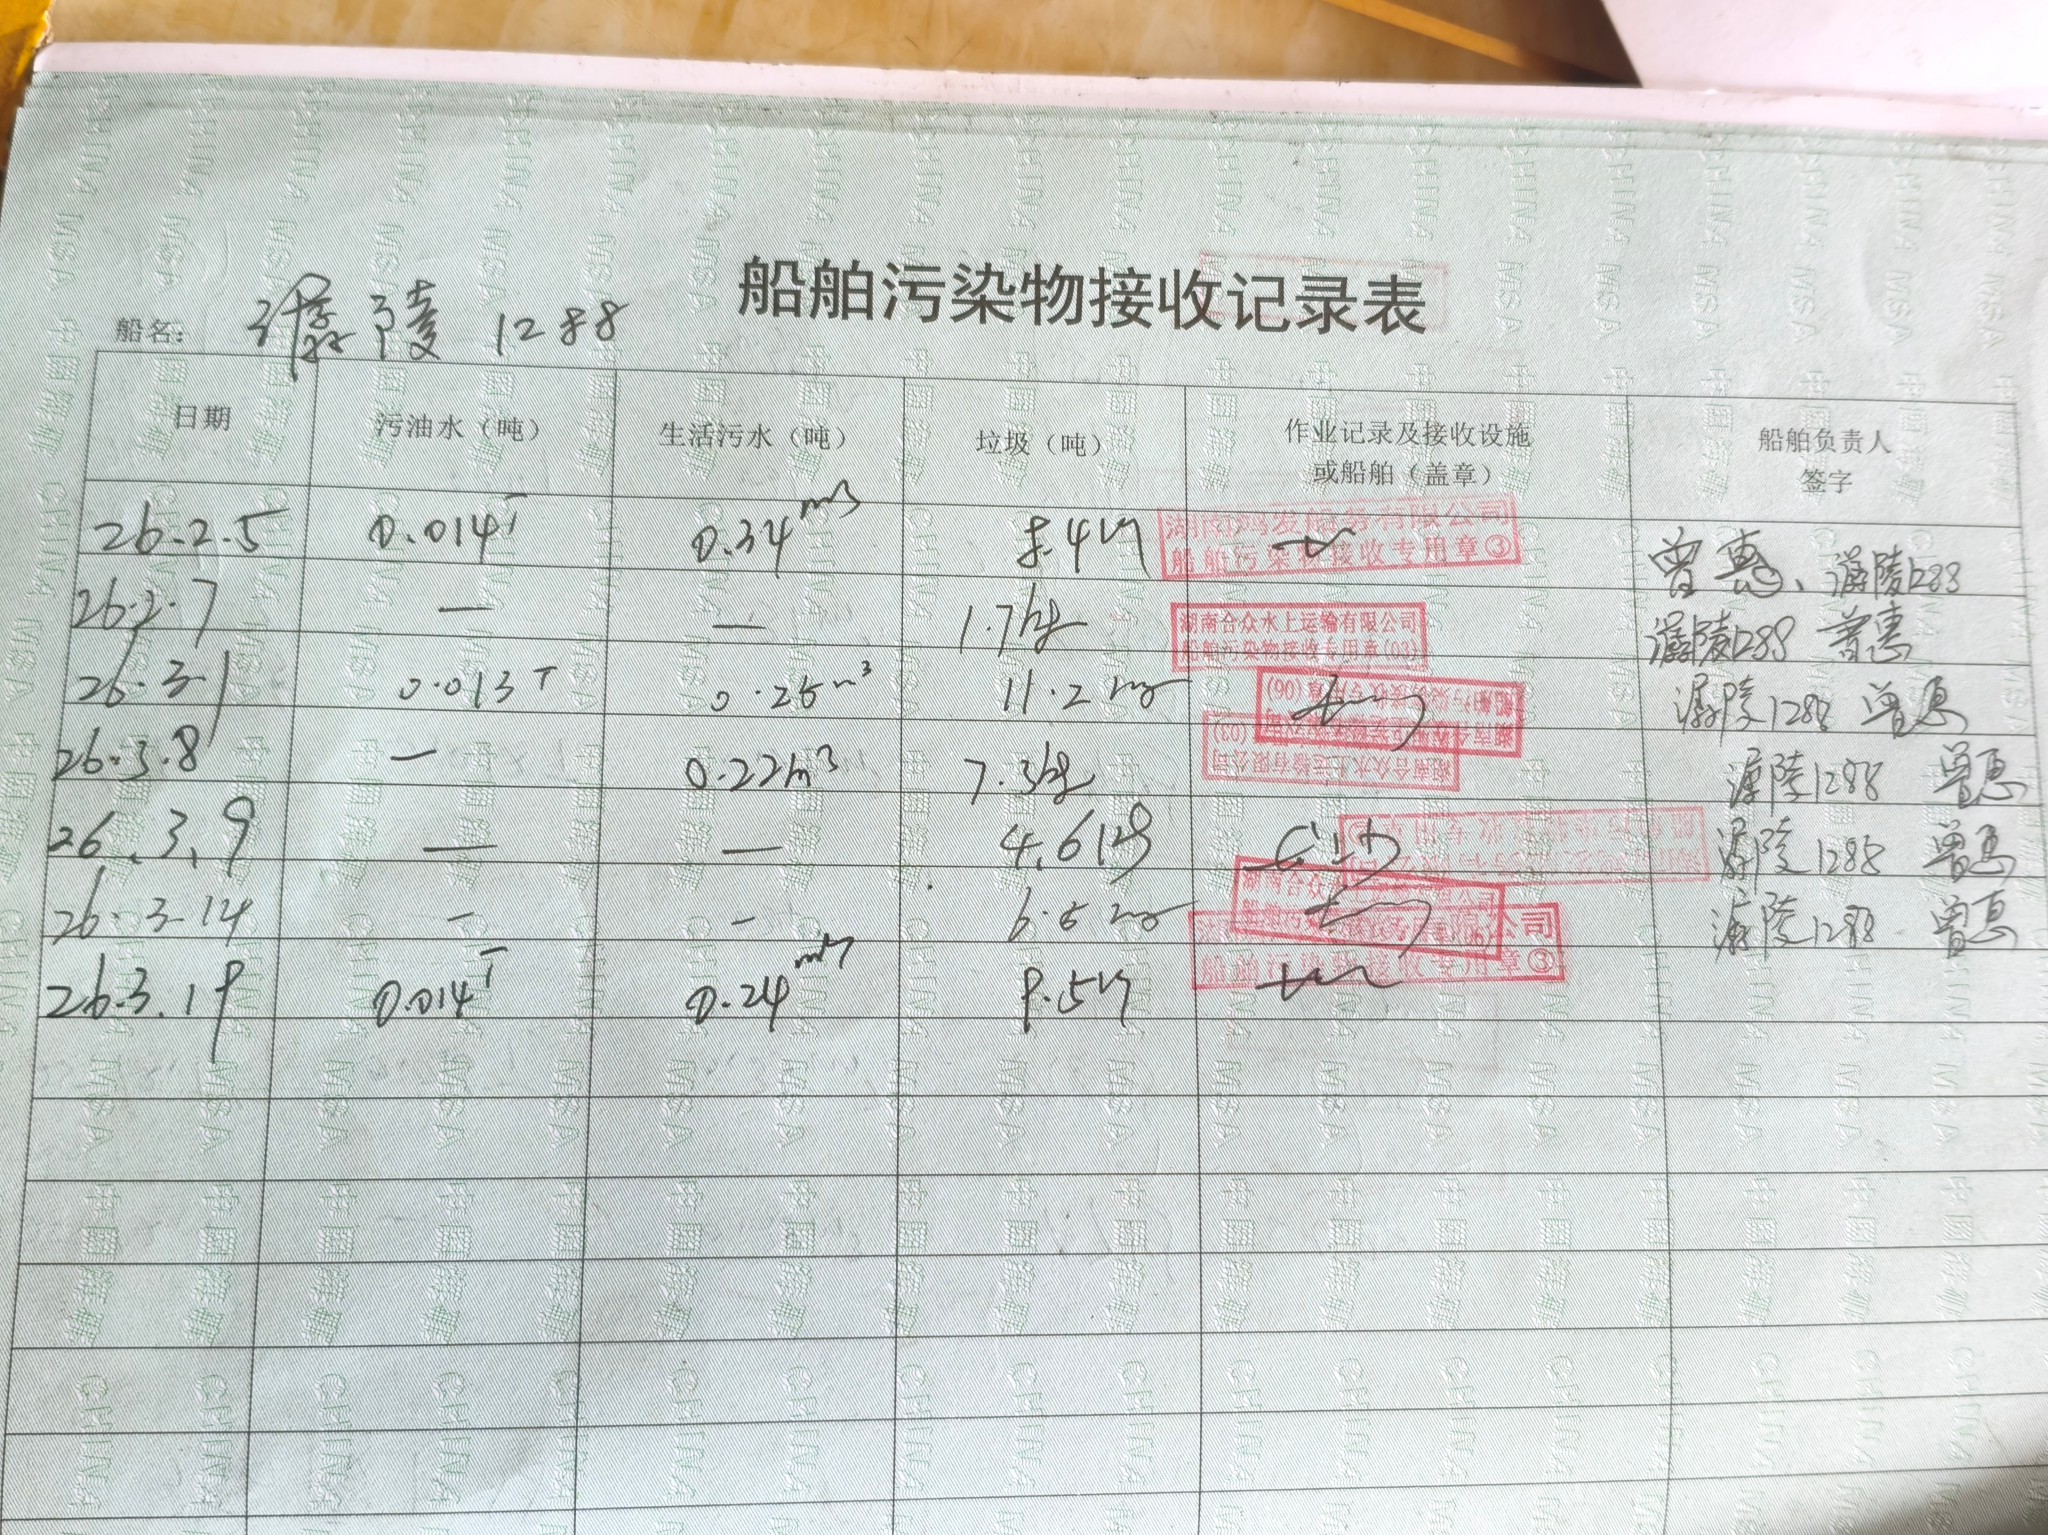 船舶污染物接收记录表
船名： 潺陵 1288
日期 污油水（吨） 生活污水（吨） 垃圾（吨） 作业记录及接收设施或船舶（盖章） 船舶负责人签字
26.2.5 0.014T 0.34m3 8.4kg 湖南鸿发船务有限公司 船舶污染物接收专用章③ 曾惠、潺陵1288
26.2.7 — — 1.7kg 湖南合众水上运输有限公司 船舶污染物接收专用章(03) 潺陵1288 曾惠
26.3.1 0.013T 0.25m3 11.2kg 船舶污染物接收专用章(06) 潺陵1288 曾惠
26.3.8 — 0.22m3 7.3kg 湖南合众水上运输有限公司 (03) 潺陵1288 曾惠
26.3.9 — — 4.6kg 潺陵1288 曾惠
26.3.14 — — 6.5kg 湖南合众 公司 潺陵1288 曾惠
26.3.19 0.014T 0.24m3 9.5kg 公司 船舶污染物接收专用章③
中国海事 CHINA MSA